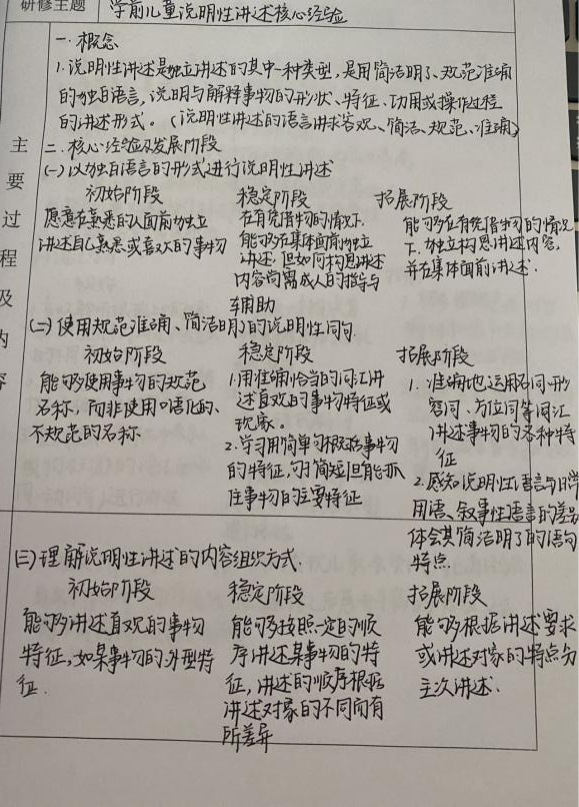 研修主题
学前儿童说明性讲述核心经验
主要过程及内容
一、概念
1.说明性讲述是独立讲述的其中一种类型,是用简洁明了、规范准确
的独白语言,说明与解释事物的形状、特征、功用或操作过程
的讲述形式。(说明性讲述的语言讲求客观、简洁、规范、准确)
二、核心经验及发展阶段
(一)以独白语言的形式进行说明性讲述
初始阶段
愿意在熟悉的人面前独立
讲述自己熟悉或喜欢的事物
稳定阶段
在有凭借物的情况下,
能够在集体面前独立
讲述,但如何构思讲述
内容尚需成人的指导与
辅助
拓展阶段
能够在有凭借物的情况
下,独立构思讲述内容,
并在集体面前讲述.
(二)使用规范准确、简洁明了的说明性词句
初始阶段
能够使用事物的规范
名称,而非使用口语化的、
不规范的名称
稳定阶段
1.用准确恰当的词汇讲
述直观的事物特征或
现象。
2.学习用简单句概括事物
的特征,句子简短但能抓
住事物的主要特征
拓展阶段
1.准确地运用名词、形
容词、方位词等词汇
讲述事物的各种特
征
2.感知说明性语言与日常
用语、叙事性语言的差别
体会其简洁明了的语句
特点.
(三)理解说明性讲述的内容组织方式.
初始阶段
能够讲述直观的事物
特征,如某事物的外型特
征.
稳定阶段
能够按照一定的顺
序讲述某事物的特
征,讲述的顺序根据
讲述对象的不同而有
所差异
拓展阶段
能够根据讲述要求
或讲述对象的特点分
主次讲述.